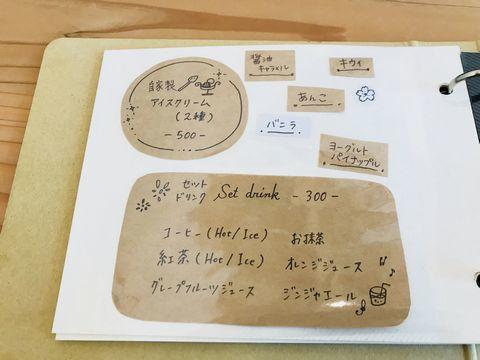 自家製
アイスクリーム
(2種)
-500-
醤油
キャラメル
キウイ
あんこ
バニラ
ヨーグルト
パイナップル
セット
ドリンク Set drink -300-
コーヒー(Hot/Ice) お抹茶
紅茶(Hot/Ice) オレンジジュース
グレープフルーツジュース ジンジャエール